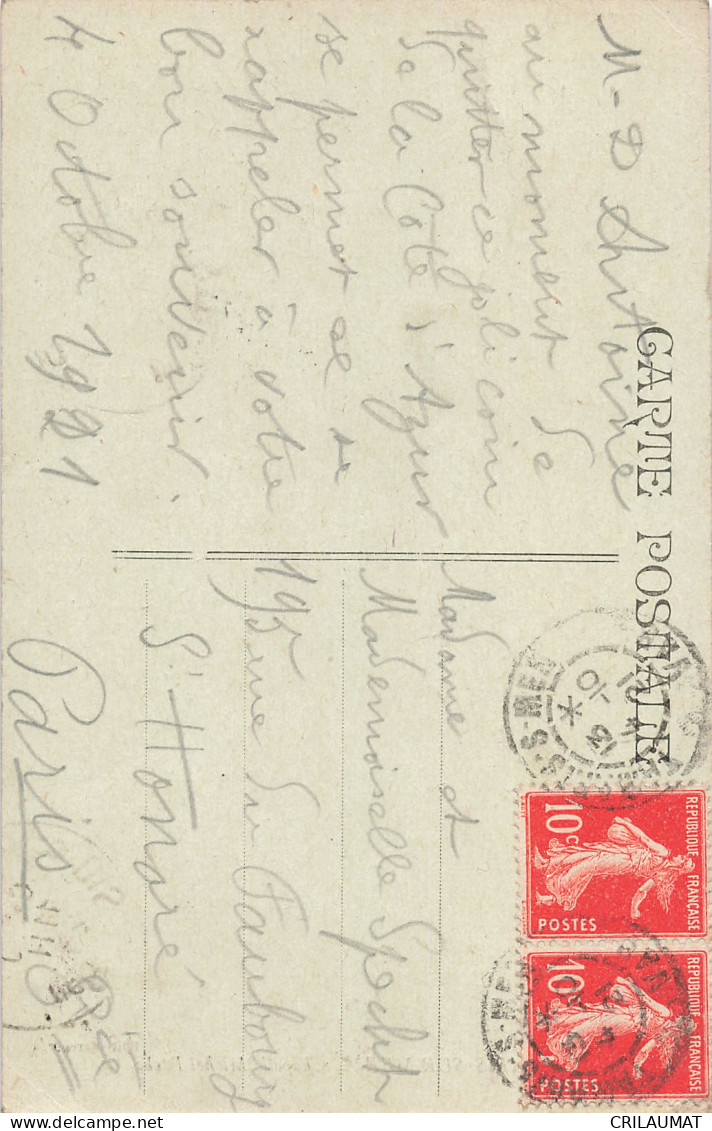 CARTE POSTALE
M-D Antoine
au moment de
quitter ce joli coin
de la Côte d'Azur
se permet de se
rappeler à votre
bon souvenir.
4 Octobre 1921
Madame et
Mademoiselle Specht
195 rue du Faubourg
St Honoré
Paris
REPUBLIQUE FRANÇAISE
10c
POSTES
REPUBLIQUE FRANÇAISE
10c
POSTES
CRILAUMAT